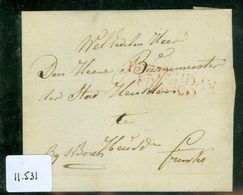 Wel Edelen Heer
Den Heere Burgemeester
der Stad Heusden
te
Heusden
By s Bosch
franko
11.531